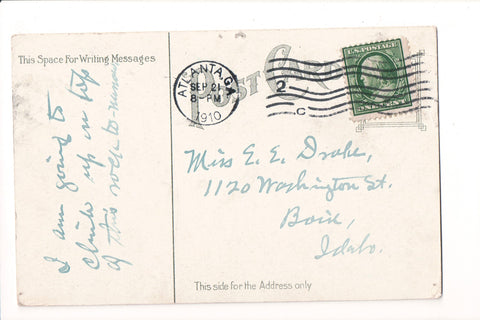 This Space For Writing Messages
POST CARD
ATLANTA, GA.
SEP 21
8-PM
1910
2
C
U.S. POSTAGE
I am going to
climb up on top
of this rock to-
Miss E. E. Drake,
1120 Washington St.
Boise,
Idaho.
This side for the Address only